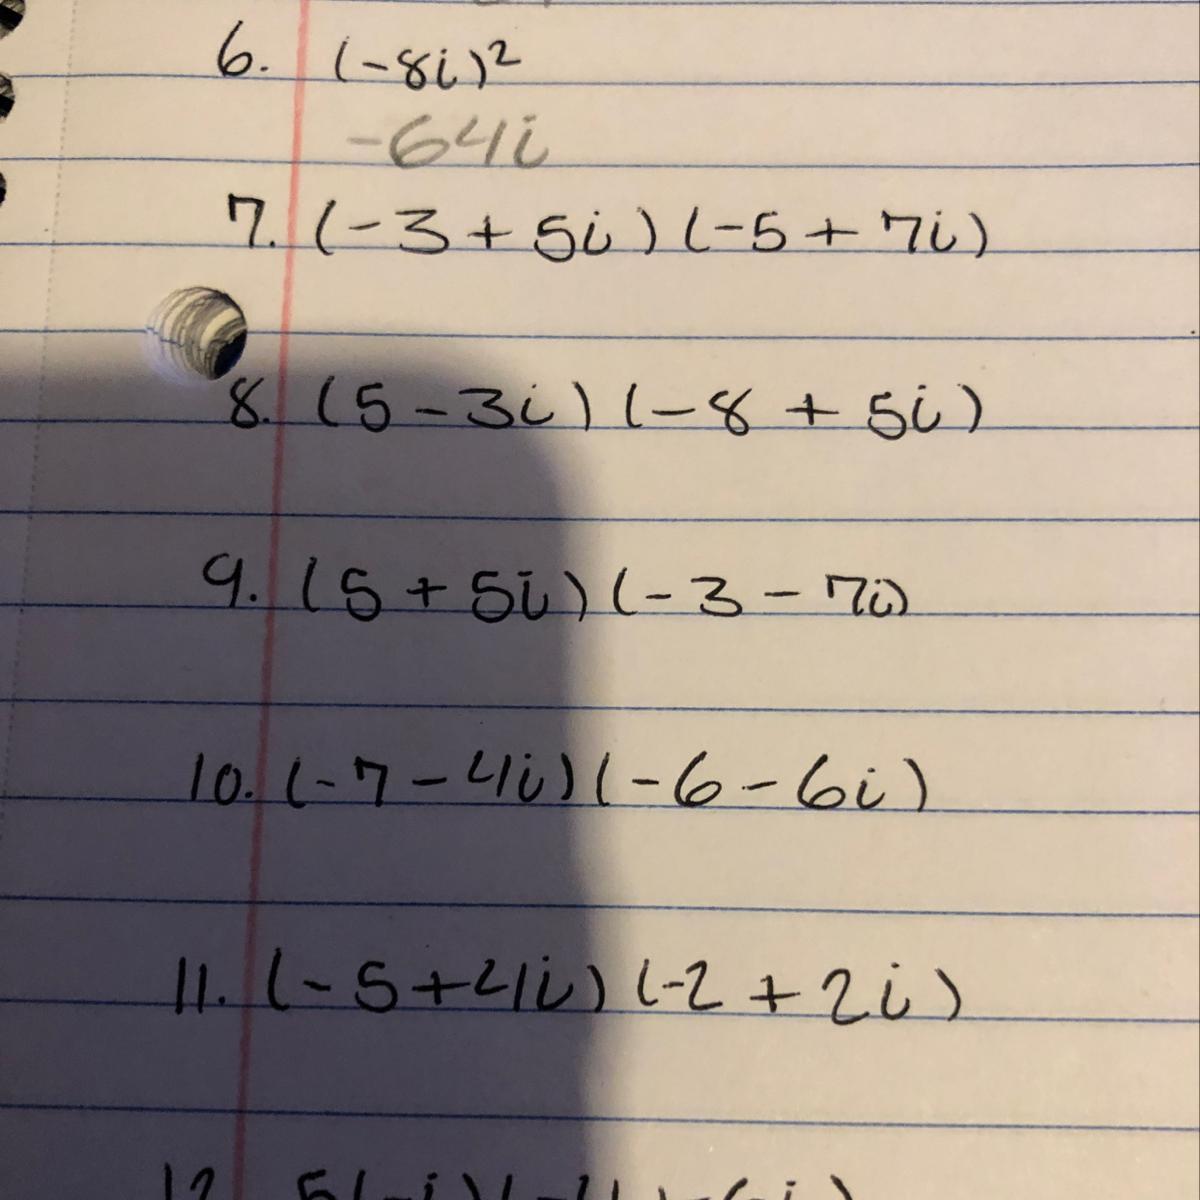 6. (-8i)²
-64i
7. (-3 + 5i)(-5 + 7i)
8. (5 - 3i)(-8 + 5i)
9. (5 + 5i)(-3 - 7i)
10. (-7 - 4i)(-6 - 6i)
11. (-5 + 4i)(-2 + 2i)